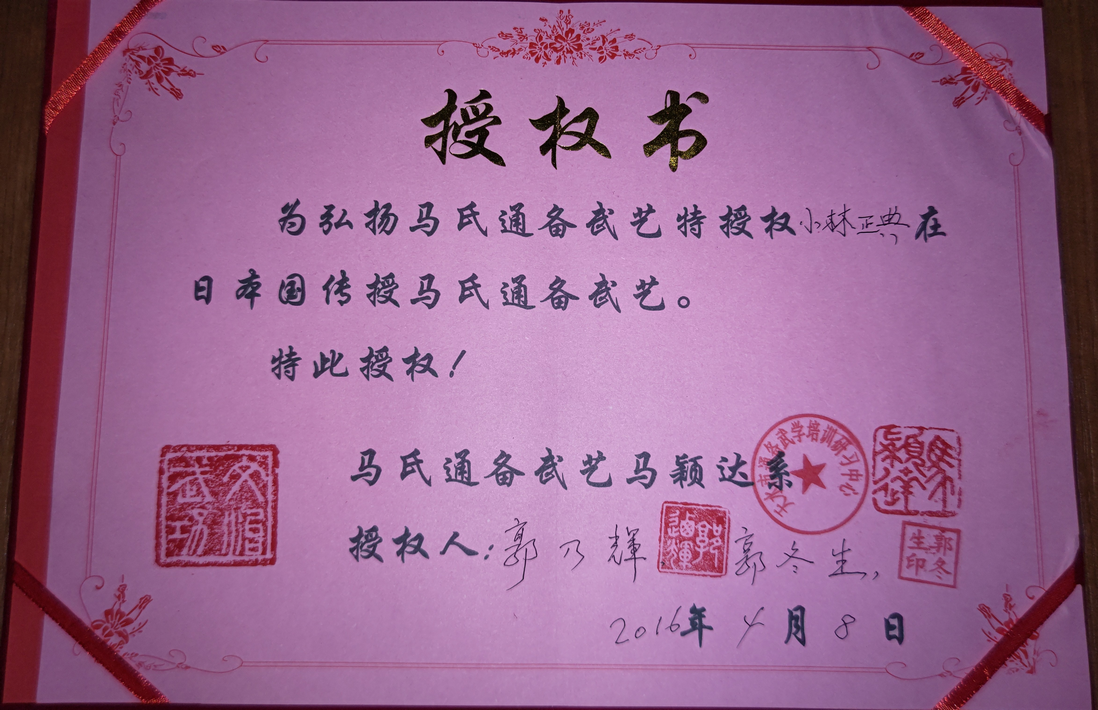 授权书
为弘扬马氏通备武艺特授权小林正典在
日本国传授马氏通备武艺。
特此授权！
马氏通备武艺马颖达系
授权人：郭乃輝 郭冬生
2016年4月8日
文脩武功
天水市通备武学培训研习中心
郭冬生印